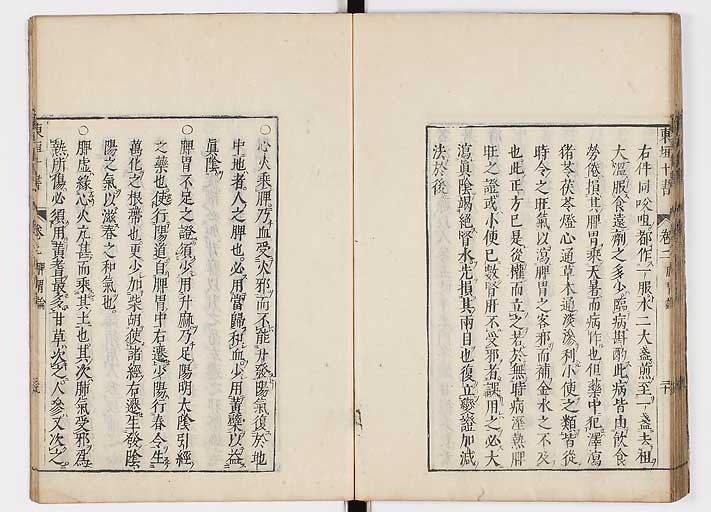 東垣十書 卷二 脾胃論 二十
右件同㕮咀都作一服水二大盞煎至一盞去粗
大溫服食遠劑之多少臨病斟酌此病皆由飲食
勞倦損其脾胃乘天暑而病作也但藥中犯澤瀉
猪苓茯苓燈心通草木通淡滲利小便之類皆從
時令之旺氣以瀉脾胃之客邪而補金水之不及
也此正方已是從權而立之若於無時病溼熱脾
旺之證或小便已數腎肝不受邪者誤用之必大
瀉真陰竭絕腎水先損其兩目也復立變證加減
法於後
○心火乘脾乃血受火邪而不能升發陽氣復於地
中地者人之脾也必用當歸和血少用黃蘗以益
真陰
○脾胃不足之證須少用升麻乃足陽明太陰引經
之藥也使行陽道自脾胃中右遷少陽行春令生
萬化之根蔕也更少加柴胡使諸經右遷生發陰
陽之氣以滋春之和氣也
○脾虛緣心火亢甚而乘其土也其次肺氣受邪爲
熱所傷必須用黃耆最多甘草次之人參又次之
東垣十書 卷二 脾胃論